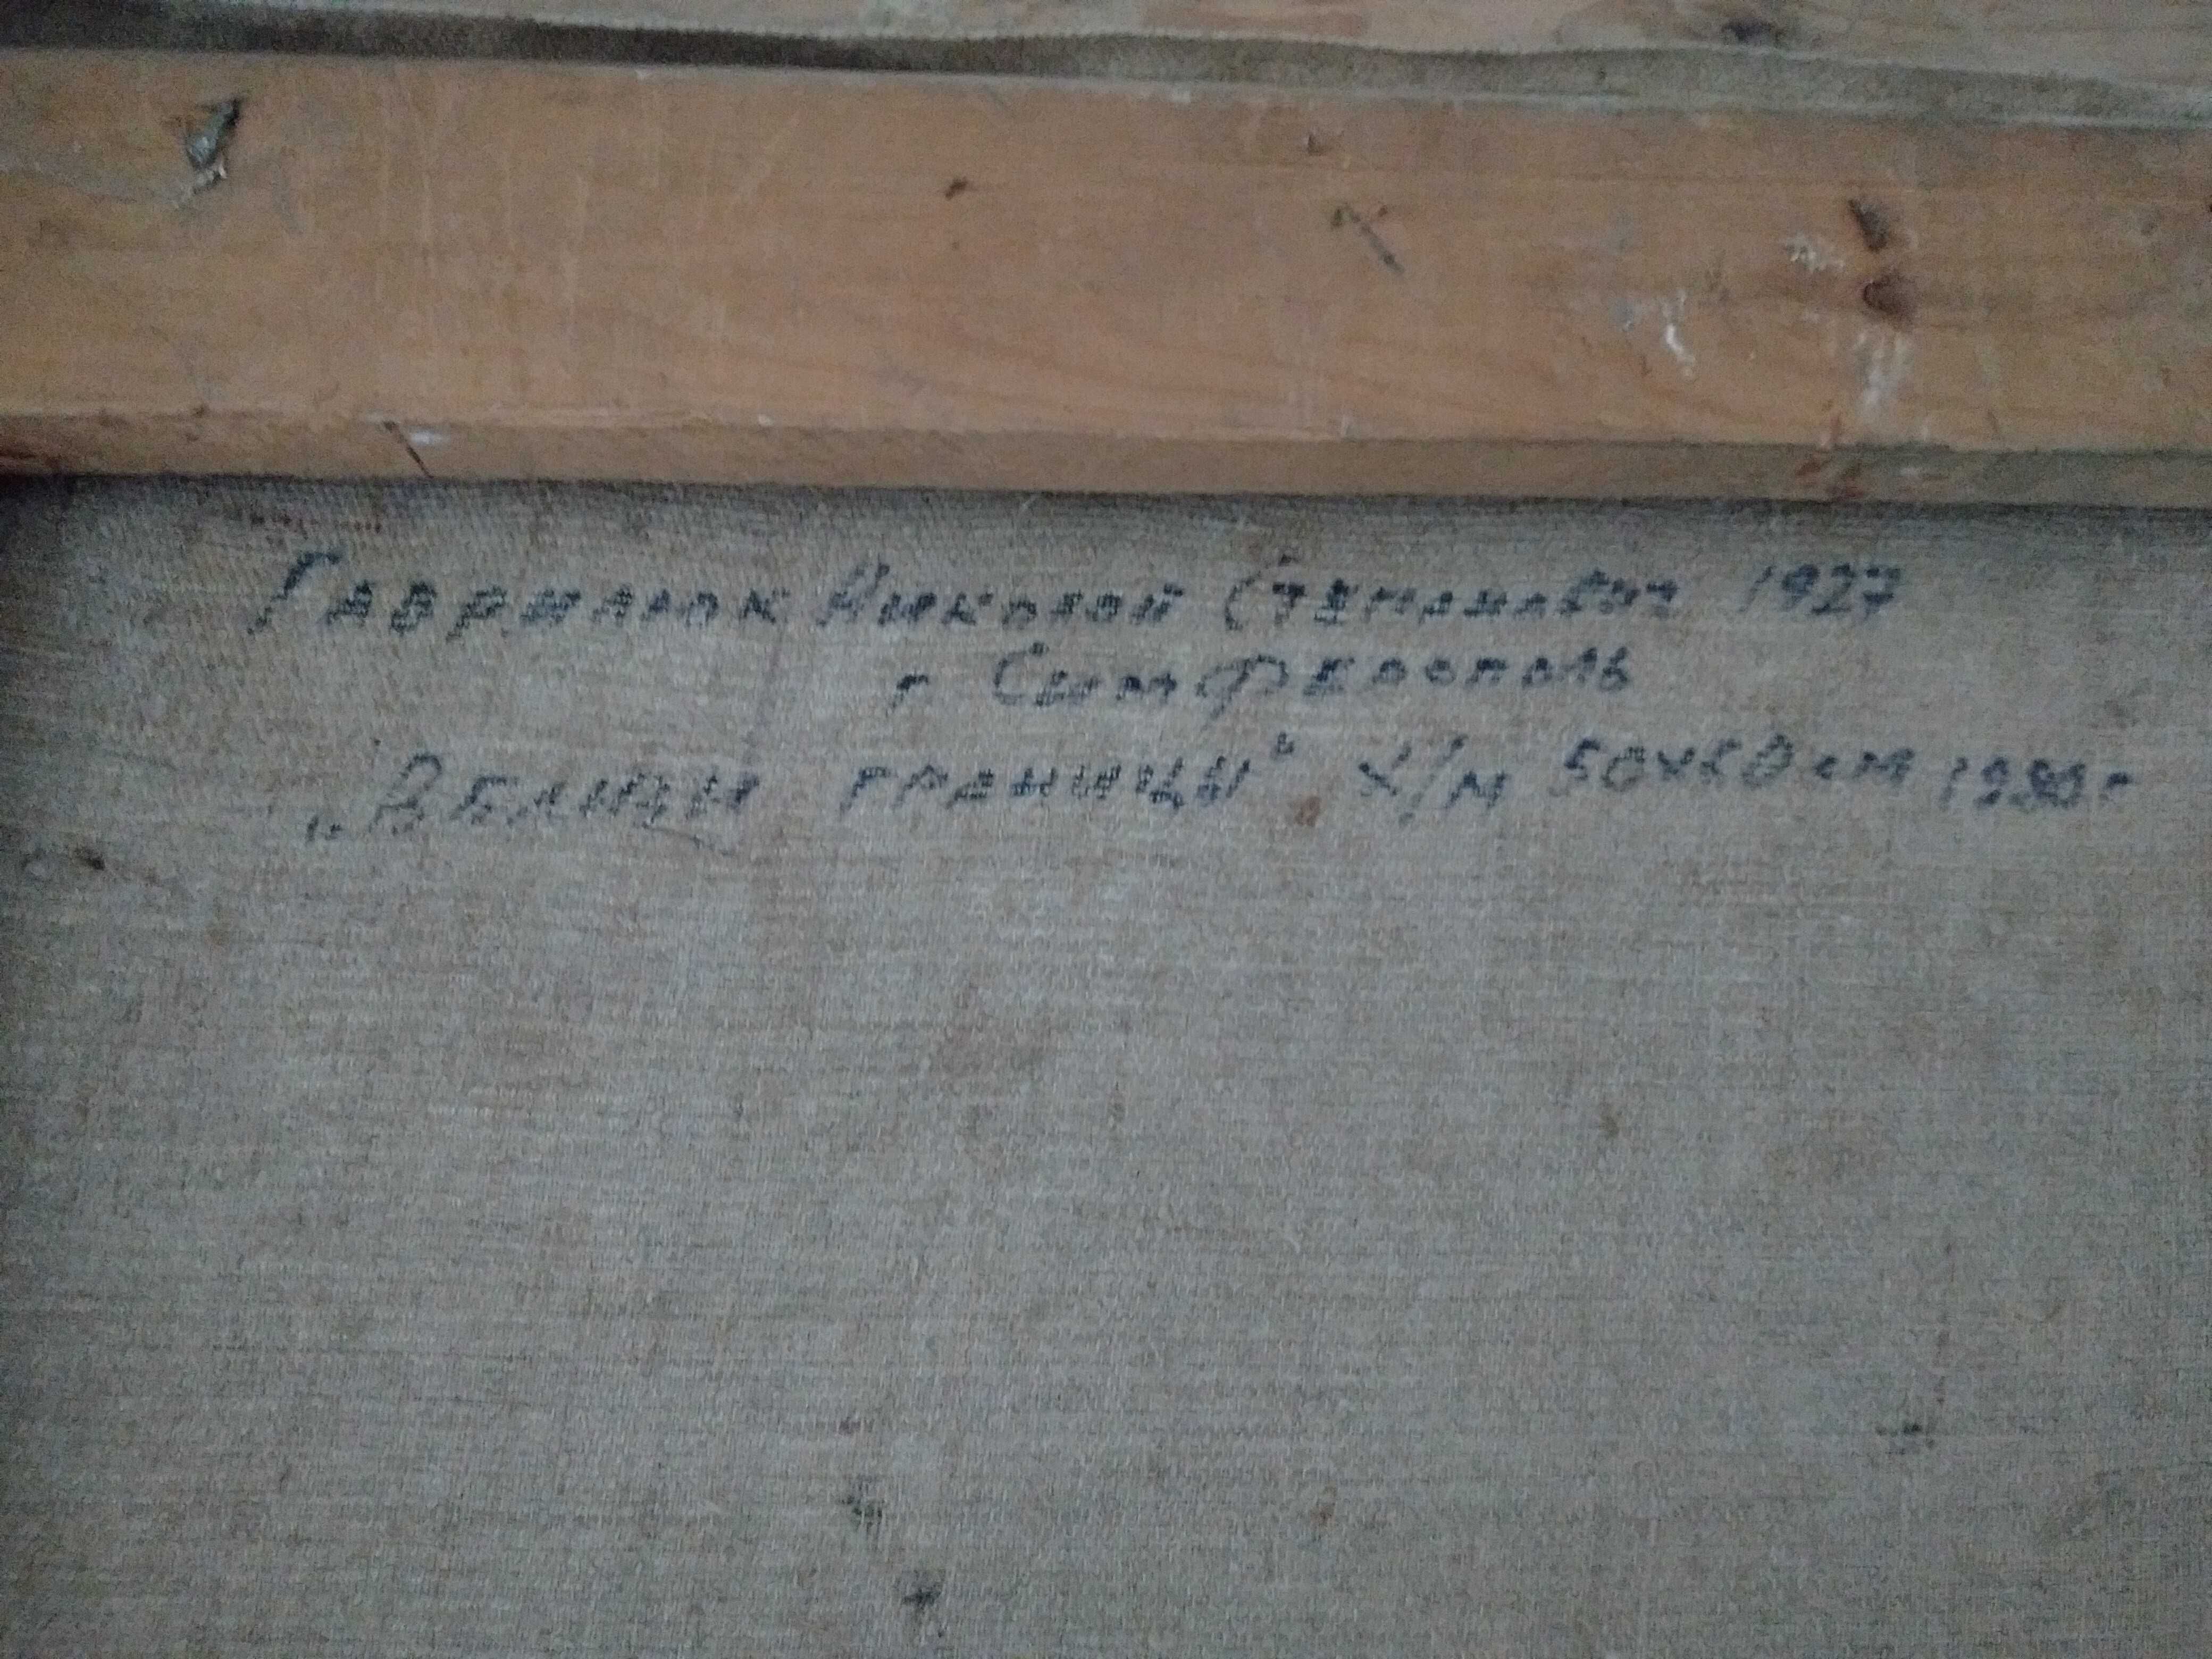 Гаврилюк Николай Степанович 1927
г Симферополь
„Вблизи границы" х/м 50х60см